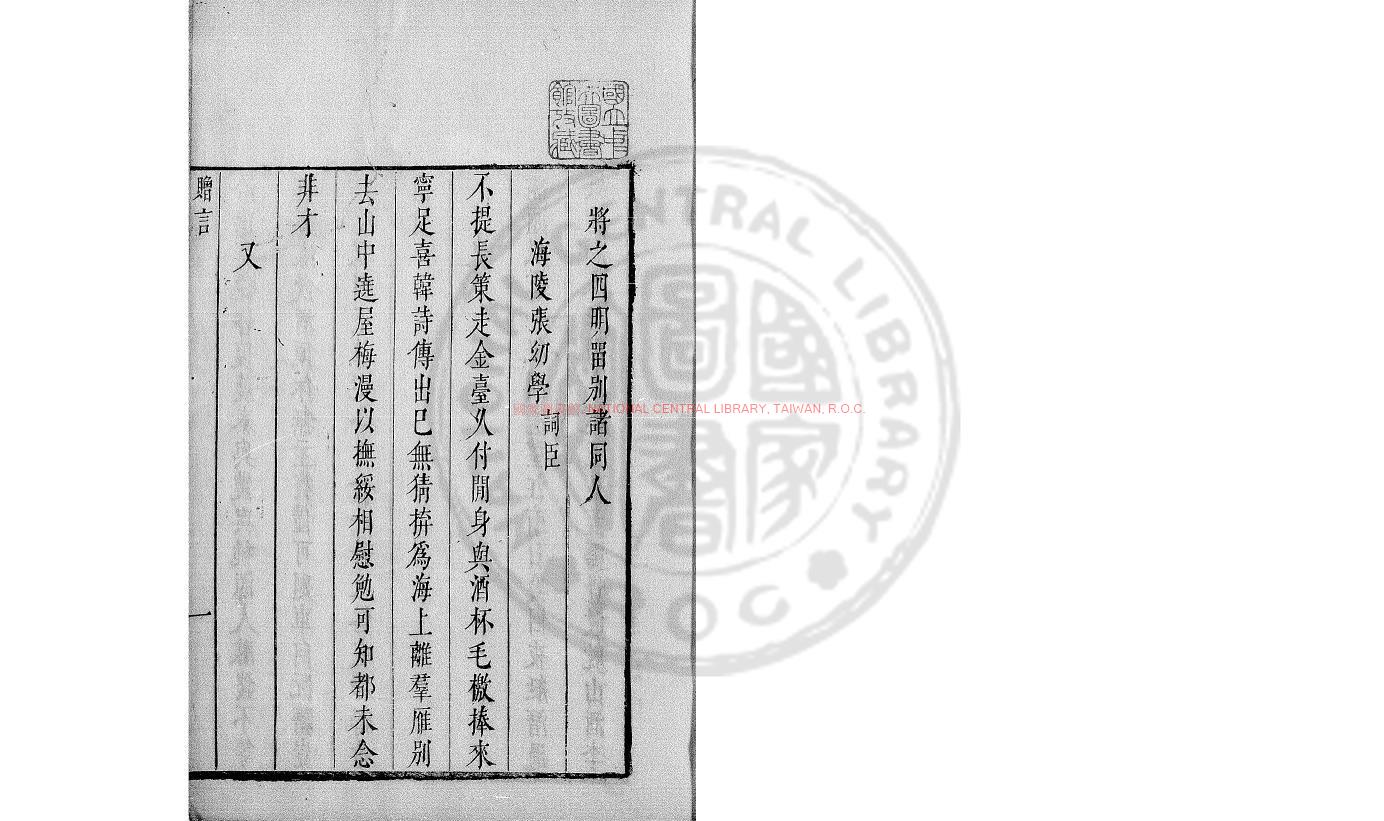 國立中
央圖書
館攷藏
將之四明畱别諸同人
海陵張幼學詞臣
不提長策走金臺乆付閒身與酒杯毛檄捧來
寧足喜韓詩傳出巳無猜拚爲海上離羣雁别
去山中遶屋梅漫以撫綏相慰勉可知都未念
非才
又
贈言
一
NATIONAL CENTRAL LIBRARY, TAIWAN, R.O.C.
NTRAL LIBRARY
R.O.C